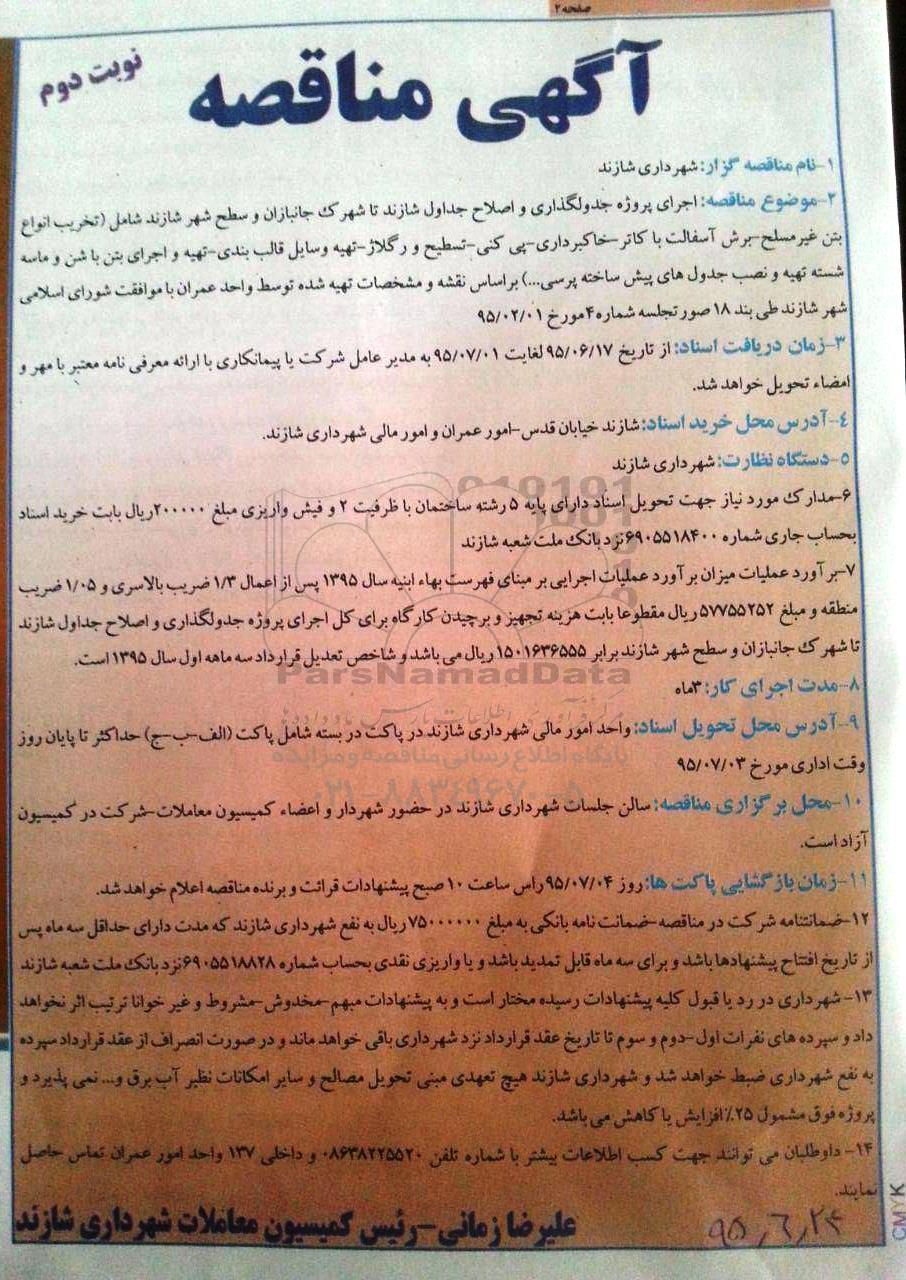 صفحه ۲
نوبت دوم
آگهی مناقصه
۱-نام مناقصه گزار: شهرداری شازند
۲-موضوع مناقصه: اجرای پروژه جدولگذاری و اصلاح جداول شازند تا شهرک جانبازان و سطح شهر شازند شامل (تخریب انواع
بتن غیرمسلح-برش آسفالت با کاتر-خاکبرداری-پی کنی-تسطیح و رگلاژ-تهیه وسایل قالب بندی-تهیه و اجرای بتن با شن و ماسه
شسته تهیه و نصب جدول های پیش ساخته پرسی...) براساس نقشه و مشخصات تهیه شده توسط واحد عمران با موافقت شورای اسلامی
شهر شازند طی بند ۱۸ صورتجلسه شماره ۴ مورخ ۹۵/۰۲/۰۱
۳-زمان دریافت اسناد: از تاریخ ۹۵/۰۶/۱۷ لغایت ۹۵/۰۷/۰۱ به مدیر عامل شرکت یا پیمانکاری با ارائه معرفی نامه معتبر با مهر و
امضاء تحویل خواهد شد.
۴-آدرس محل خرید اسناد: شازند خیابان قدس-امور عمران و امور مالی شهرداری شازند.
۵-دستگاه نظارت: شهرداری شازند
۶-مدارک مورد نیاز جهت تحویل اسناد دارای پایه ۵ رشته ساختمان با ظرفیت ۲ و فیش واریزی مبلغ ۲۰۰۰۰۰ ریال بابت خرید اسناد
بحساب جاری شماره ۶۹۰۵۵۱۸۴۰۰ نزد بانک ملت شعبه شازند
۷-برآورد عملیات میزان برآورد عملیات اجرایی بر مبنای فهرست بهاء ابنیه سال ۱۳۹۵ پس از اعمال ۱/۳ ضریب بالاسری و ۱/۰۵ ضریب
منطقه و مبلغ ۵۷۷۵۵۲۵۲ ریال مقطوعا بابت هزینه تجهیز و برچیدن کارگاه برای کل اجرای پروژه جدولگذاری و اصلاح جداول شازند
تا شهرک جانبازان و سطح شهر شازند برابر ۱۵۰۱۶۳۶۵۵۵ ریال می باشد و شاخص تعدیل قرارداد سه ماهه اول سال ۱۳۹۵ است.
ParsNamadData
۸-مدت اجرای کار: ۳ماه
۹-آدرس محل تحویل اسناد: واحد امور مالی شهرداری شازند در پاکت در بسته شامل پاکت (الف-ب-ج) حداکثر تا پایان روز
پایگاه اطلاع رسانی مناقصه و مزایده
وقت اداری مورخ ۹۵/۰۷/۰۳
۰۲۱-۸۸۳۴۹۶۷۰-۵
۱۰-محل برگزاری مناقصه: سالن جلسات شهرداری شازند در حضور شهردار و اعضاء کمیسیون معاملات-شرکت در کمیسیون
آزاد است.
۱۱-زمان بازگشایی پاکت ها: روز ۹۵/۰۷/۰۴ راس ساعت ۱۰ صبح پیشنهادات قرائت و برنده مناقصه اعلام خواهد شد.
۱۲-ضمانتنامه شرکت در مناقصه-ضمانت نامه بانکی به مبلغ ۷۵۰۰۰۰۰۰ ریال به نفع شهرداری شازند که مدت دارای حداقل سه ماه پس
از تاریخ افتتاح پیشنهادها باشد و برای سه ماه قابل تمدید باشد و یا واریزی نقدی بحساب شماره ۶۹۰۵۵۱۸۸۲۸ نزد بانک ملت شعبه شازند
۱۳-شهرداری در رد یا قبول کلیه پیشنهادات رسیده مختار است و به پیشنهادات مبهم-مخدوش-مشروط و غیر خوانا ترتیب اثر نخواهد
داد و سپرده های نفرات اول-دوم و سوم تا تاریخ عقد قرارداد نزد شهرداری باقی خواهد ماند و در صورت انصراف از عقد قرارداد سپرده
به نفع شهرداری ضبط خواهد شد و شهرداری شازند هیچ تعهدی مبنی تحویل مصالح و سایر امکانات نظیر آب برق و... نمی پذیرد و
پروژه فوق مشمول ۲۵٪ افزایش یا کاهش می باشد.
۱۴- داوطلبان می توانند جهت کسب اطلاعات بیشتر با شماره تلفن ۰۸۶۳۸۲۲۵۵۲۰ و داخلی ۱۳۷ واحد امور عمران تماس حاصل
نمایند.
علیرضا زمانی-رئیس کمیسیون معاملات شهرداری شازند
۹۵,۶,۲۴
CMYK